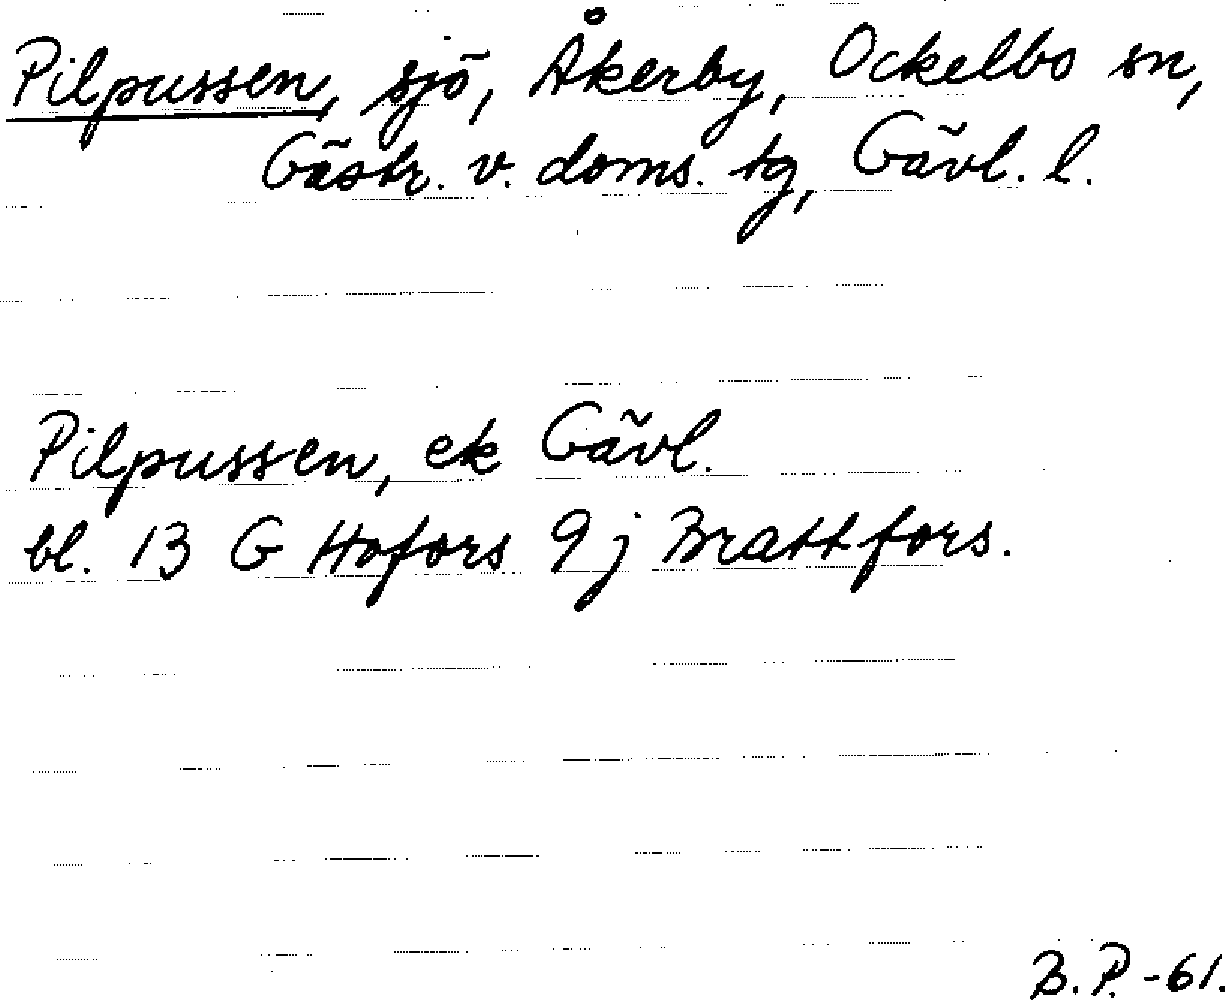 Pilpussen, sjö, Åkerby, Ockelbo sn,
Gästr. v. doms. tg, Gävl. l.
Pilpussen, ek Gävl.
bl. 13 G Hofors 9j Brattfors.
B.P. -61.